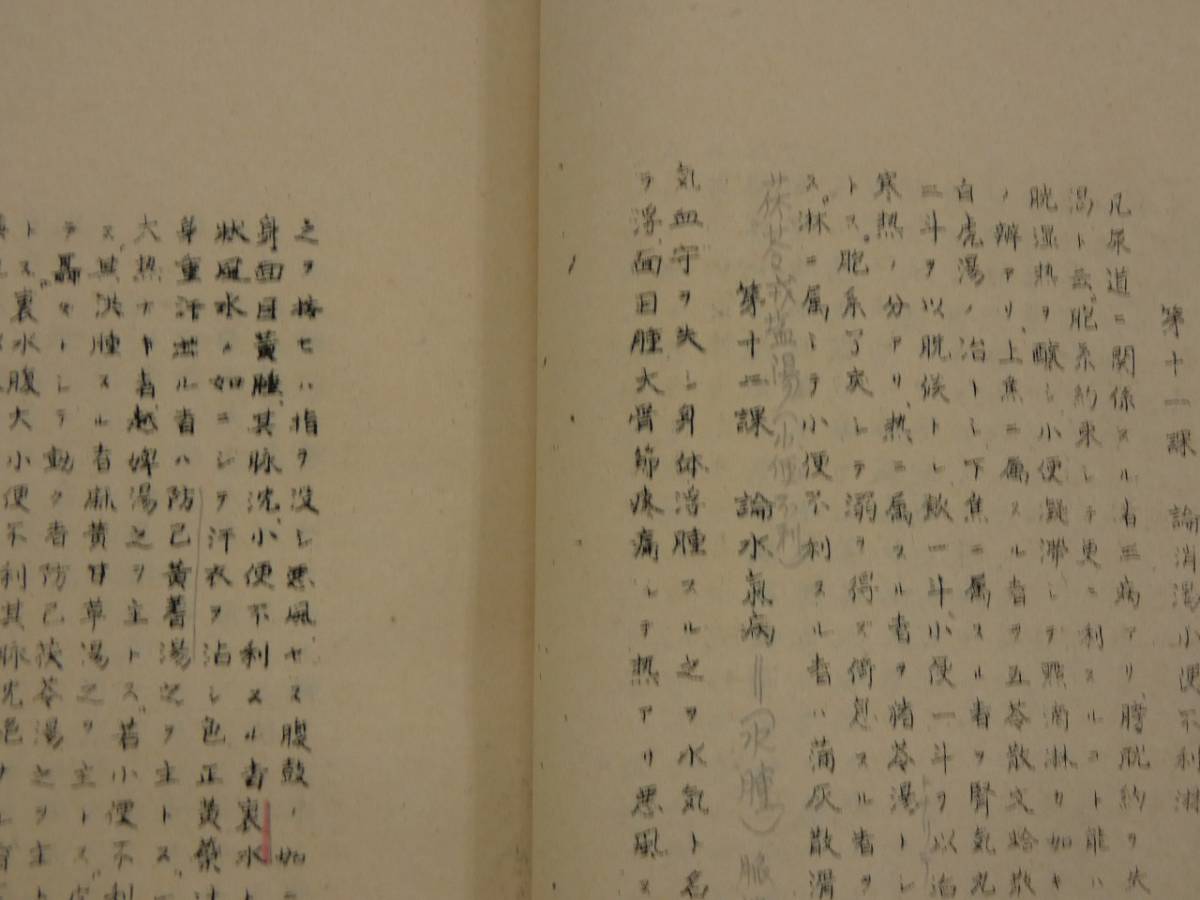 第十一課　論消渇小便不利淋
凡尿道ニ関係スル者三病アリ、膀胱約ヲ失
渇ト云、胞系約束シテ更ニ利スルコト能ハ
胱湿熱ヲ醸シ小便凝滞シテ點滴淋リ如キ
ノ辨アリ、上焦ニ属スル者ヲ五苓散文蛤散
白虎湯ノ治トシ下焦ニ属スル者ヲ腎氣丸
ニ斗ヲ以脱候トシ飲一斗、小便一斗ヲ以治
寒熱ノ分アリ、熱ニ属スル者ヲ猪苓湯トシ
トス。胞系了戾シテ溺ヲ得ズ倚息スル者ヲ
ス。淋ニ属シテ小便不利スル者ハ蒲灰散滑
茯苓戎塩湯（小便不利）
第十二課　論水氣病＝（水腫）脹
気血守ヲ失シ身体浮腫スル之ヲ水気ト名
ラ浮、面目腫大骨節疼痛シテ熱アリ悪風ス
之ヲ按セハ指ヲ没シ悪風セス腹鼓ノ如シ
身面目黄腫、其脉沈、小便不利スル者裏水ト
状風水ノ如ニシヲ汗衣ヲ沾シ色正黄蘗
身重汗出ル者ハ防己黄蓍湯之ヲ主トス
大熱ナキ者越婢湯之ヲ主トス。若小便不利
ス、其洪腫スル者麻黄甘草湯之ヲ主トス。
テ聶々トシテ動ク者防己茯苓湯之ヲ主ト
トス。裏水腹大小便不利其脉沈絶